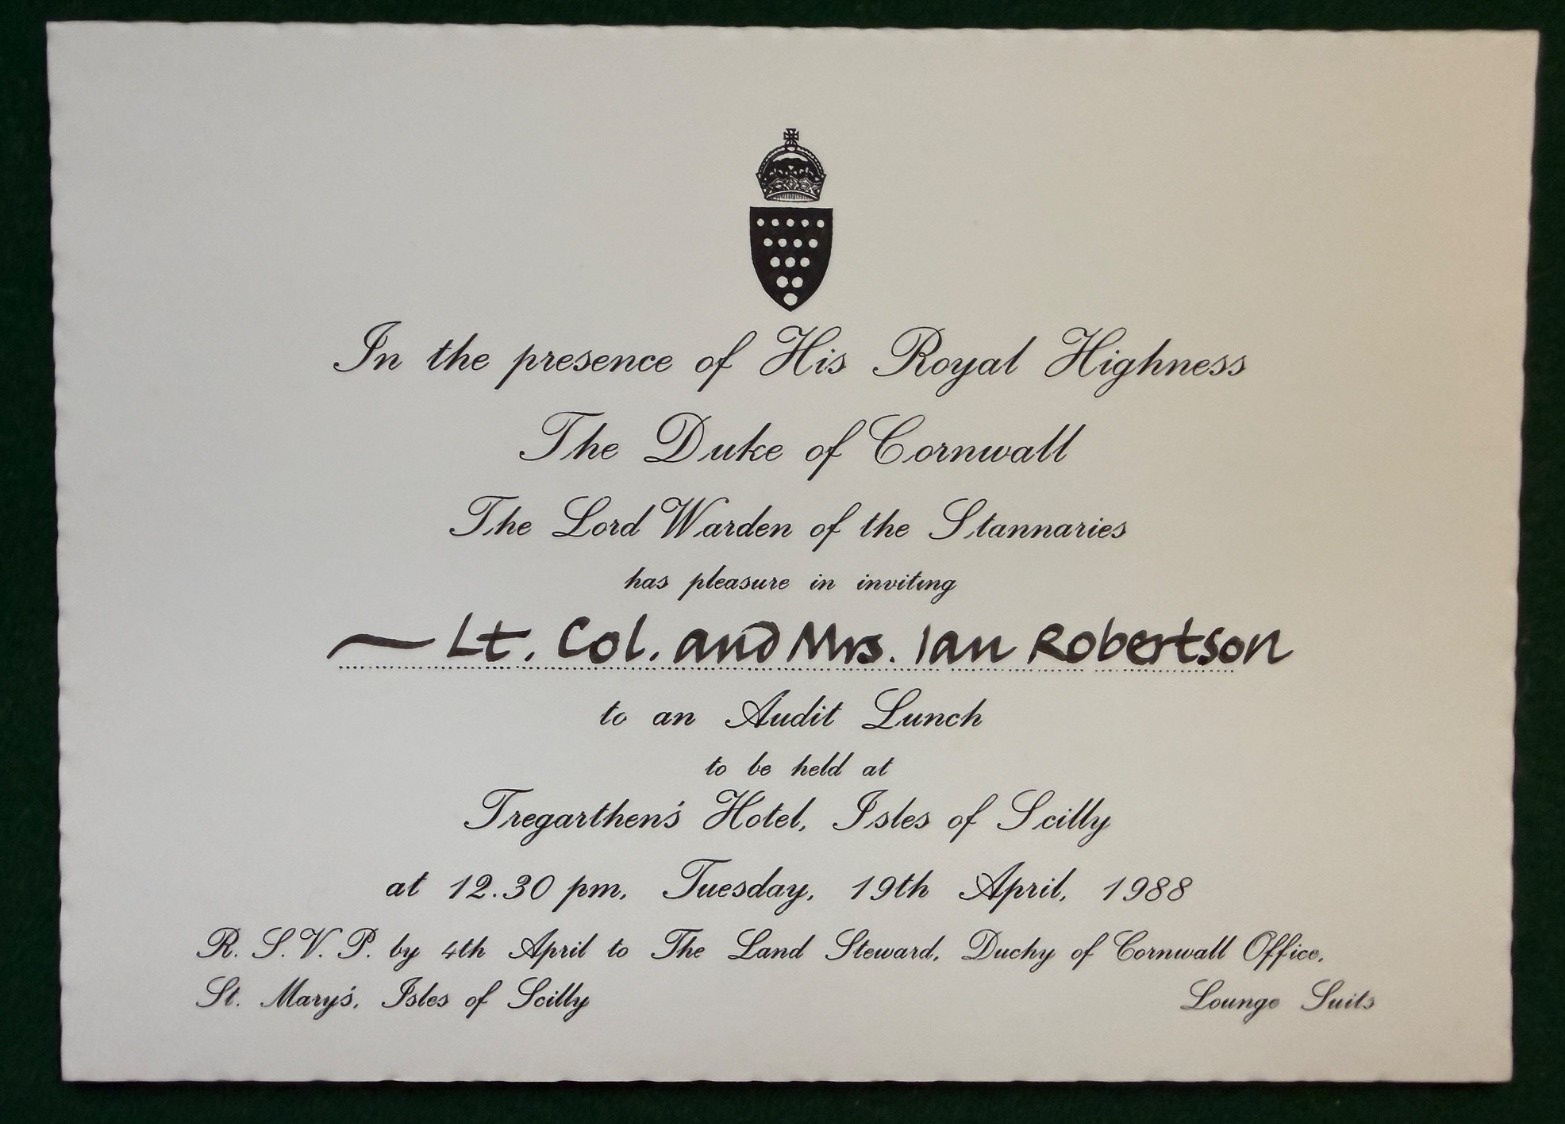 In the presence of His Royal Highness
The Duke of Cornwall
The Lord Warden of the Stannaries
has pleasure in inviting
~ Lt. Col. and Mrs. Ian Robertson
to an Audit Lunch
to be held at
Tregarthen's Hotel, Isles of Scilly
at 12.30 pm, Tuesday, 19th April, 1988
R. S. V. P. by 4th April to The Land Steward, Duchy of Cornwall Office,
St. Mary's, Isles of Scilly
Lounge Suits